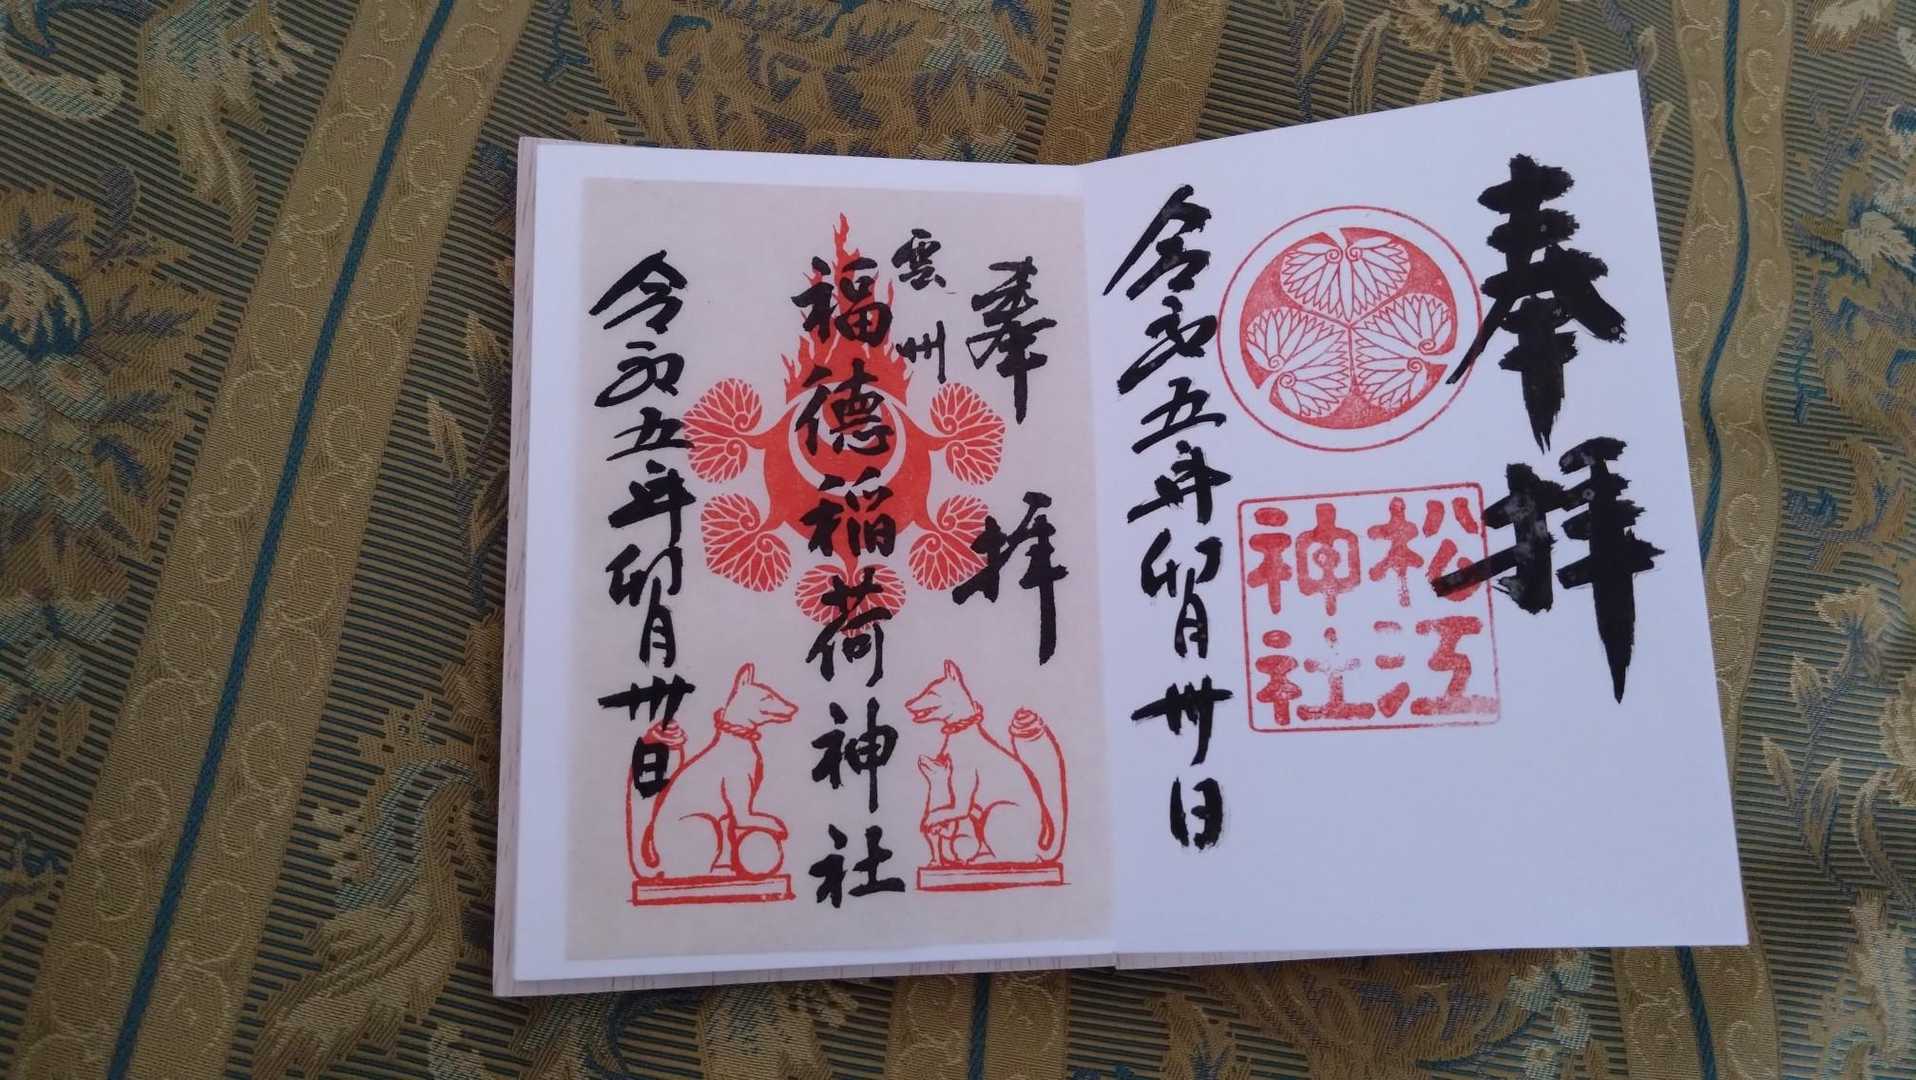 奉拝
松江
神社
令和五年卯月卅日
奉拝
雲州
福徳稲荷神社
令和五年卯月卅日